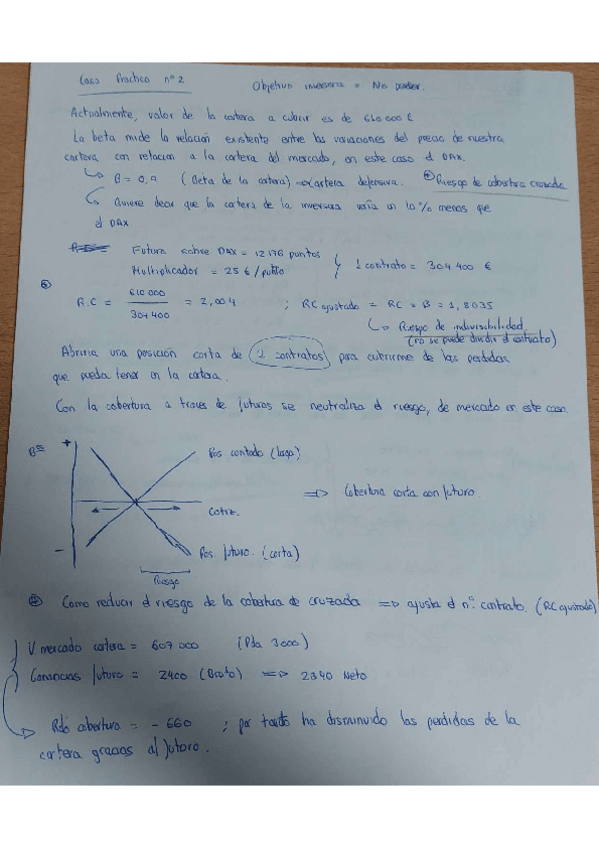 Caso Practico nº 2
Objetivo inversoria = No perder.
Actualmente, valor de la cartera a cubrir es de 610 000 €
La beta mide la relación existente entre las variaciones del precio de nuestra
cartera con relacion a la cartera del mercado, en este caso el DAX.
B = 0,9 (Beta de la cartera) → cartera defensiva. * Riesgo de cobertura cruzada
Quiere decir que la cartera de la inversora varia un 10 % menos que
el DAX
Futuro sobre DAX = 12176 puntos
Multiplicador = 25 € / punto
1 contrato = 304 400 €
R.C = 610 000 / 304 400 = 2,004 ; RC ajustado = RC × B = 1,8035
Riesgo de indivisibilidad
(no se puede dividir el contrato)
Abriria una posición corta de 2 contratos para cubrirme de las perdidas
que pueda tener en la cartera.
Con la cobertura a traves de futuros se neutraliza el riesgo, de mercado en este caso.
Bº
+
Pos contado (larga)
⇒ Cobertura corta con futuro.
Cotiz.
−
Pos. futuro. (corta)
Riesgo
* Como reducir el riesgo de la cobertura de cruzada ⇒ ajusta el nº contrato. (RC ajustado)
V mercado cartera = 607 000 (Pda 3000)
Ganancias futuro = 2400 (Bruto) ⇒ 2340 Neto
Rdo cobertura = - 660 ; por tanto ha disminuido las perdidas de la
cartera gracias al futuro.